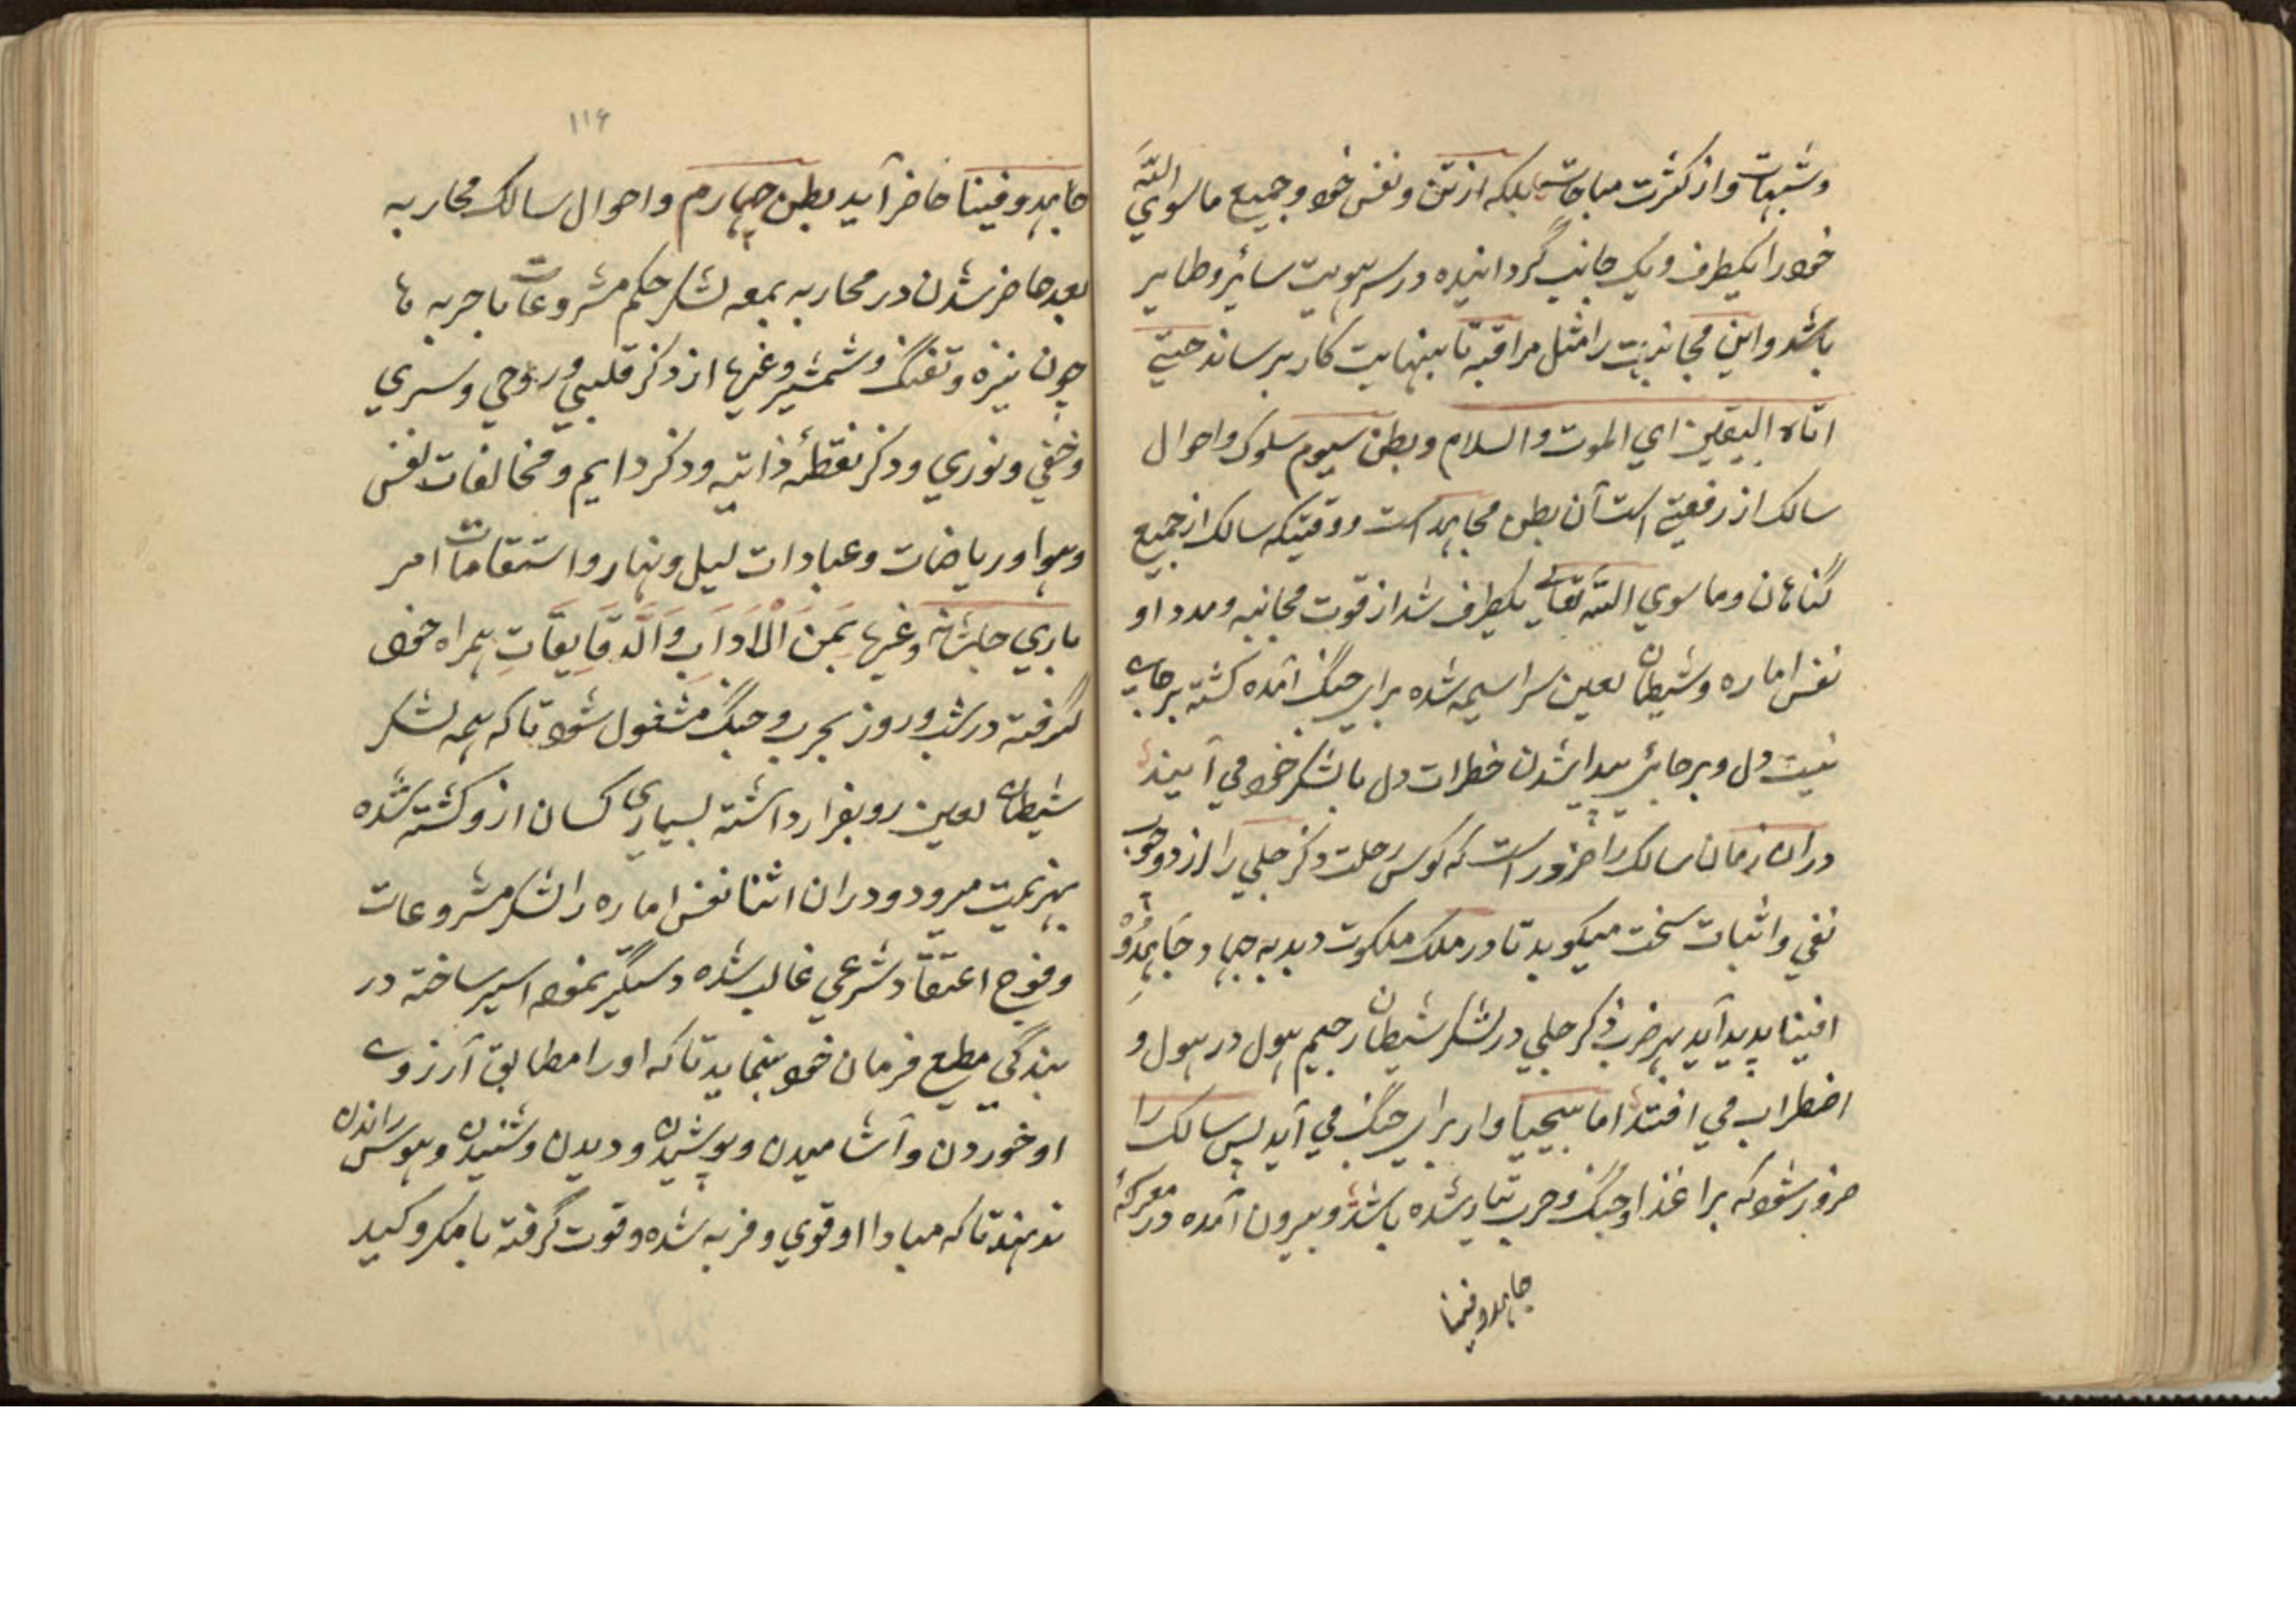 وشبهات واز کثرت مباحات بلکه از تن ونفس خود وجمیع ماسوي الله
خود را یکطرف ویک جانب گردانیده در سر هویت سائر وطایر
باشد واین مجانبت را مثل مراقبه تا بنهایت کار برساند حتي
اتاه الیقین اي الموت والسلام وبطن سیوم سلوک واحوال
سالک از رفعتي است آن بطن مجاهد است ووقتیکه سالک از جمیع
گناهان وماسوي الله تعالے یکطرف شد از قوت مجانبه ومدد او
نفس اماره وشیطان لعین سراسیمه شده براي جنگ آمده کشته برجاے
نیت دل وبرجائے پیدا شدن خطرات دل با لشکر خود مي آیند
دران زمان سالک را ضرور است که کوس رحلت ذکر جلي را از دو چوب
نفي واثبات سخت میکوبد تا در ملک ملکوت دبدبه جهاد جَاهِدُوْ
افینا پدید آید بهر ضرب ذکر جلي در لشکر شیطان رجیم هول در هول و
اضطراب مي افتد اما بیحیا وار براي جنگ مي آید پس سالک را
ضرور شود که برا غذا وجنگ وحرب تیار شده باشد وبیرون آمده در معرکهٔ
جاهدو فینا
۱۱۶
جاهدو فینا حاضر آید بطن چهارم واحوال سالک محاربه
بعد حاضر شدن در محاربه بمعه لشکر حکم مشروعات با حربه ها
چون نیزه وتفنگ وشمشیر وغیرها از ذکر قلبي وروحي وسري
وخفي ونوري وذکر نقطهٔ ذاتیه وذکر دایم ومخالفات نفس
وهوا وریاضات وعبادات لیل ونهار واستقامات امر
باري جلشانه وغیرها بَمِنَ الْاَدَابِ وَالَّدقَایِقَاتِ همراه خود
گرفته در شب وروز بحرب وجنگ مشغول شود تا که همه لشکر
شیطان لعین رو بفرار داشته بسیاري کسان ازو کشته شده
بهزیمت میرود ودران اثنا نفس اماره را لشکر مشروعات
وفوج اعتقاد شرعي غالب شده دستگیر نموده اسیر ساخته در
بندگي مطیع فرمان خود بنماید تا که او را مطابق آرزوے
او خوردن وآشامیدن وپوشیدن ودیدن وشنیدن وهوس راندن
ندهند تا که مبادا او قوي وفربه شده وقوت گرفته با مکر وکید